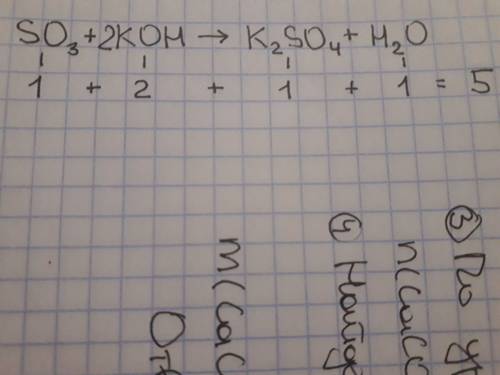 SO₃+2KOH → K₂SO₄+H₂O
1 + 2 + 1 + 1 = 5
③ По
n(CaCO
④
m(CaC